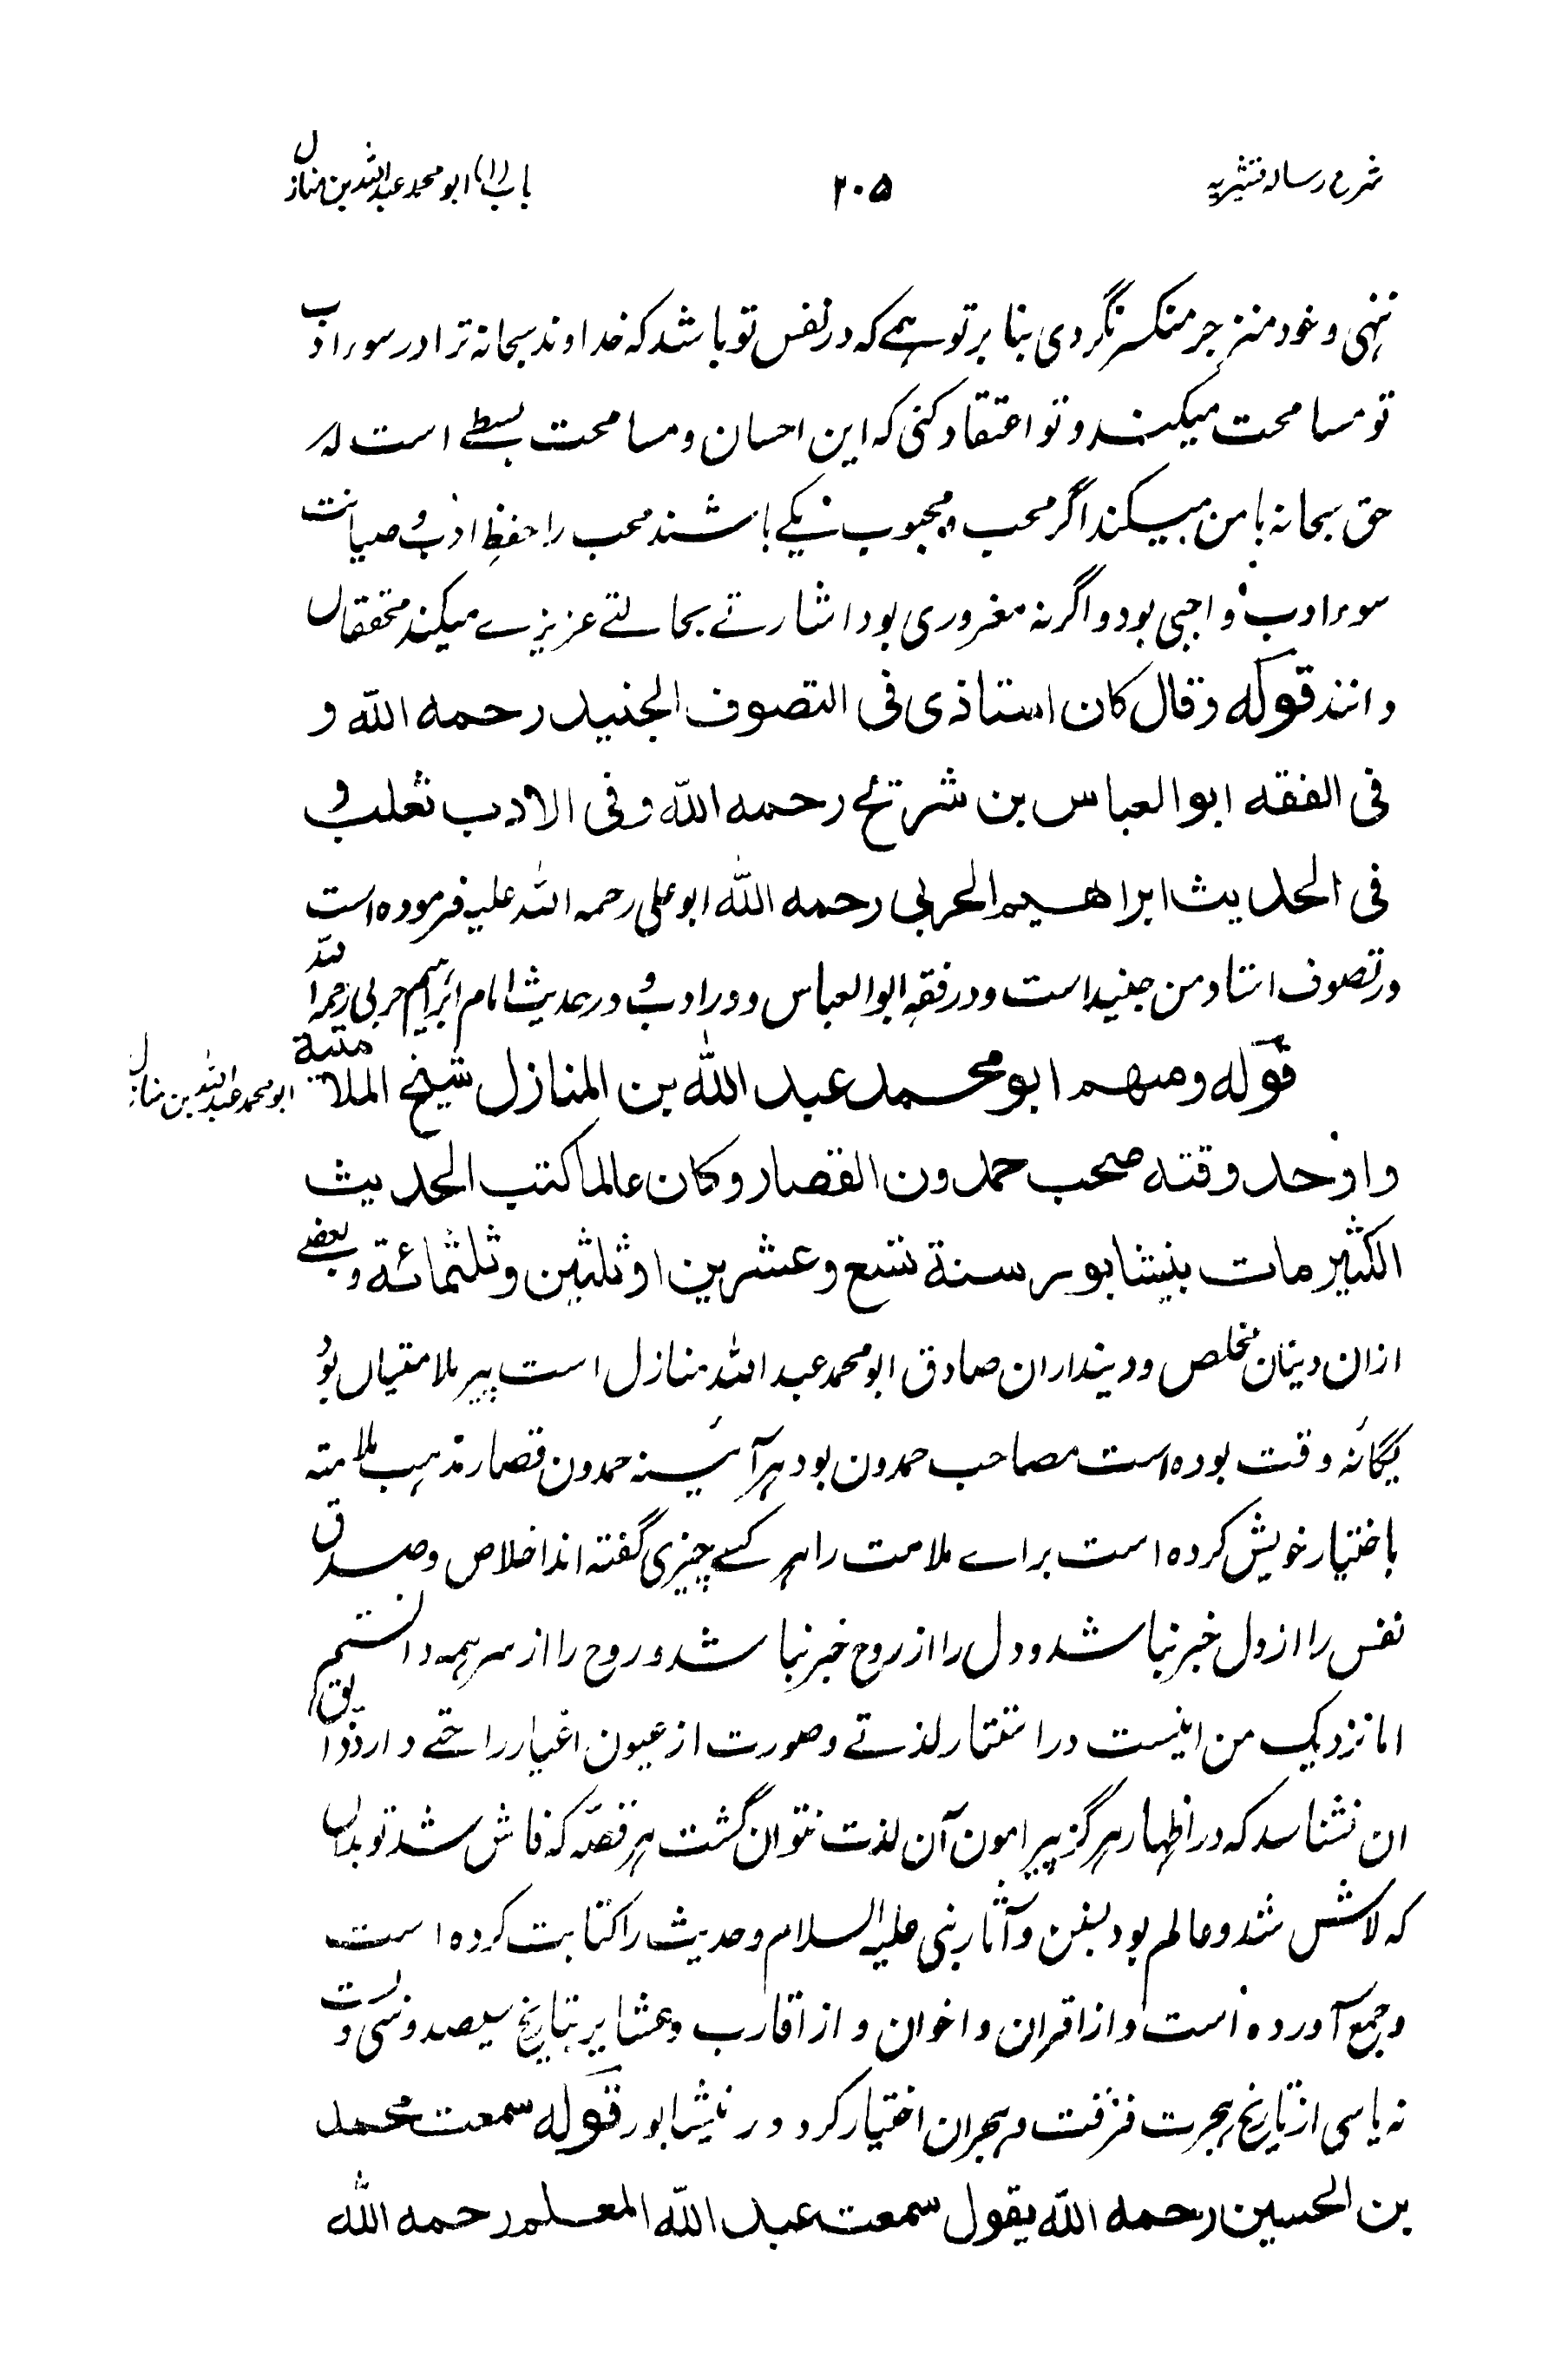 شرح رساله قشیریه
۲۰۵
باب (۱) ابو محمد عبد الله بن منازل
ننهی و خود منزجر منکسر نگردی بنا بر توهمے که در نفس تو باشد که خداوند سبحانه ترا در سوء ادب
تو مسامحت میکند و تو اعتقاد کنی که این احسان و مسامحت بسطے است که
حق سبحانه با من میکند اگر محب و محبوب نیکے باشند محب را حفظِ ادب و صیانت
سوء ادب واجبی بود و اگر نه مغروری بود اشارتے بحالتے عزیزے میکند محققان
دانند قوله و قال کان استاذی فی التصوف الجنید رحمه الله و
فی الفقه ابو العباس بن شریح رحمه الله و فی الادب ثعلب و
فی الحدیث ابراهیم الحربی رحمه الله ابو علی رحمه الله علیه فرموده است
در تصوف استاد من جنید است و در فقه ابو العباس و در ادب و در حدیث امام ابراهیم حربی رحمه الله
قوله و منهم ابو محمد عبد الله بن المنازل شیخ الملامتیة
ابو محمد عبد الله بن منازل
و اوحد وقته صحب حمدون القصار و کان عالما کتب الحدیث
الکثیر مات بنیشابور سنة تسع و عشرین او ثلثین و ثلثمائة و بعضے
ازان دینان مخلص و دینداران صادق ابو محمد عبد الله منازل است پیر ملامتیاں بود
یگانۂ وقت بوده است مصاحب حمدون بود هر آئینه حمدون قصار مذهب ملامته
باختیار خویش کرده است براے ملامت را هر کسے چیزی گفته اند اخلاص و صدق
نفس را از دل خبر نباشد و دل را از روح خبر نباشد و روح را از سر همه دانستیم
اما نزدیک من اینست در استتار لذتے و صورت از عیون اغیار راحتے دارد ذایق
ان نشناسد که در اظهار هرگز پیرامون آن لذت نتوان گشت هر قصّه که فاش شد تو بداں
که لاش شد و عالم بود بسنن و آثار نبی علیه السلام و حدیث را کتابت کرده است
و جمع آورده است و از اقران و اخوان و از اقارب و عشایر بتاریخ سیصد و بیست و
نه یا سی از تاریخ هجرت فرقت و هجران اختیار کرد در نیشابور قوله سمعت محمد
بن الحسین رحمه الله یقول سمعت عبد الله المعلم رحمه الله